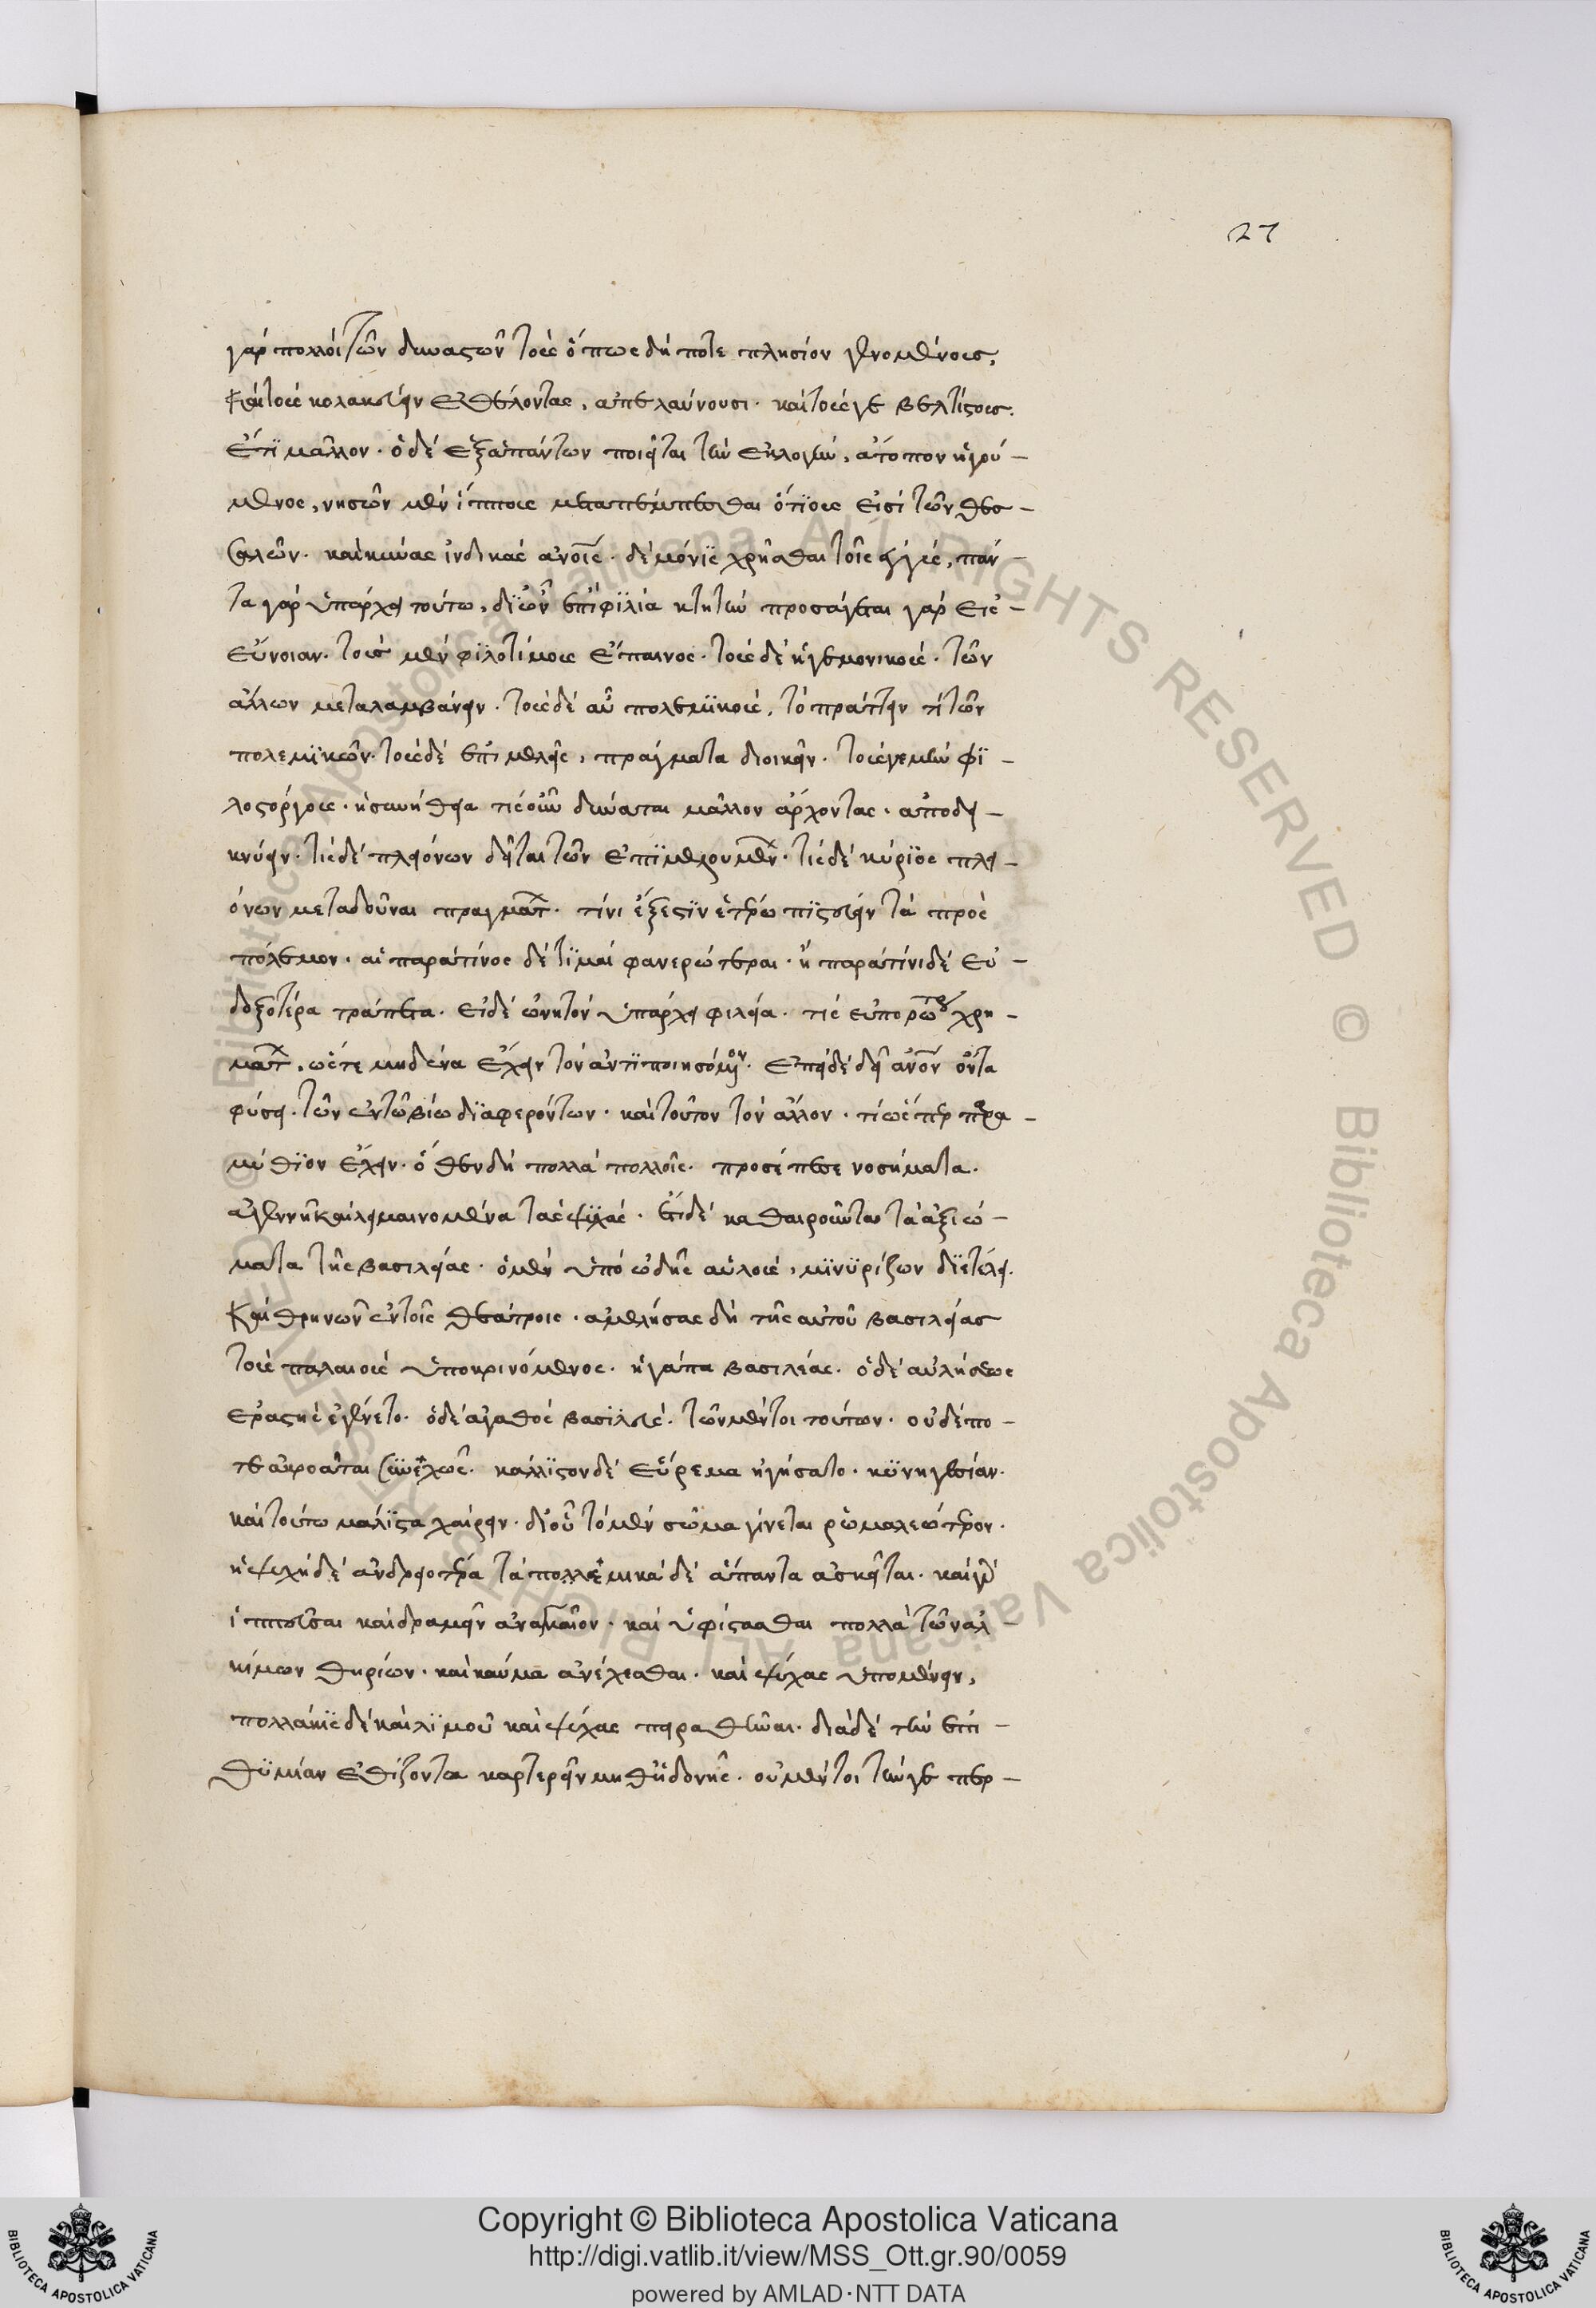 27
γαρ πολλοὶ τῶν δυναστῶν τοὺς ὅπως δή ποτε πλησίον γενομένους,
καὶ τοὺς κολακεύειν ἐθέλοντας, ἀπελαύνουσι. καὶ τούς γε βελτίστους.
ἔτι μᾶλλον. ὁ δὲ ἐξ ἁπάντων ποιεῖται τὴν ἐκλογὴν, ἄτοπον ἡγού-
μενος, νησῶν μὲν ἵππους μεταπέμπεσθαι ὅτι οἷς εἰσὶ τῶν θεσ-
σαλῶν. καὶ κύνας ἰνδικὰς ἀνοις. δὲ μόνις χρῆσθαι τοῖς ἐγγὺς, πάν
τα γὰρ ὑπάρχει τούτω, δι' ὧν ἐστὶ φιλία κτητὴ προσάγεται γὰρ εἰς
εὔνοιαν. τοὺς μὲν φιλοτίμους ἔπαινος. τοὺς δὲ ἡγεμονικοὺς. τῶν
ἄλλων μεταλαμβάνειν. τοὺς δὲ αὖ πολεμικοὺς, τὸ πράττειν τί τῶν
πολεμικῶν. τοὺς δὲ ἐπιμελεῖς, πράγματα διοικεῖν. τούς γε μὴν φι-
λοστόργους. ἡ συνήθεια τίς οὖν δύναται μᾶλλον ἄρχοντας. ἀποδει-
κνύειν. τίς δὲ πλειόνων δεῖται τῶν ἐπιμελουμεν. τίς δὲ κύριος πλει-
όνων μεταδοῦναι πραγματ. τίνι ἔξεστιν ἑτέρω πιστεύειν τὰ πρὸς
πόλεμον. αἱ παρὰ τίνος δὲ τιμαὶ φανερώτεραι. ἡ παρὰ τίνι δὲ εὐ-
δοξότερα τράπεζα. εἰ δὲ ὠνητὸν ὑπάρχει φιλία. τίς εὐπορώτερος χρη-
ματ, ὥστε μηδένα ἔχειν τὸν ἀντιποιησόμενον. ἐπεὶ δὲ δεῖ ανον ὄντα
φύσει. τῶν ἐν τῶ βίω διαφερόντων. καὶ τοῦτον τὸν ἄλλον. τί ὥσπερ παρα-
μύθιον ἔχειν. ὅθεν δὴ πολλὰ πολλοῖς. προσέπεσε νοσήματα.
ἀγεννῆ καὶ λυμαινομένα τὰς ψυχὰς. ἔτι δὲ καθαιροῦνται τὰ ἀξιώ-
ματα τῆς βασιλείας. ὁ μὲν ὑπὸ ὠδῆς αὐλοὺς, μινυρίζων διετέλει.
καὶ θρηνῶν ἐν τοῖς θεάτροις. ἀμελήσας δὴ τῆς αὐτοῦ βασιλείας
τοὺς παλαιοὺς ὑποκρινόμενος. ἠγάπα βασιλέας. ὁ δὲ αὐλήσεως
ἐραστὴς ἐγένετο. ὁ δὲ ἀγαθὸς βασιλεὺς. τῶν μέντοι τούτων. οὐδέπο-
τε ἀκροᾶται συνεχῶς. κάλλιστον δὲ εὕρεμα ἡγήσατο. κυνηγεσίαν.
καὶ τούτω μάλιστα χαίρειν. δι' οὗ τὸ μὲν σῶμα γίνεται ῥωμαλεώτερον.
ἡ ψυχὴ δὲ ἀνδρειοτέρα τὰ πολλεμικὰ δὲ ἅπαντα ἀσκεῖται. καὶ γὰρ
ἱππεῦσαι καὶ δραμεῖν ἀναγκαῖον. καὶ ὑφίστασθαι πολλὰ τῶν ἀλ-
κίμων θηρίων. καὶ καῦμα ἀνέχεσθαι. καὶ ψύχας ὑπομένειν,
πολλάκις δὲ καὶ λιμοῦ καὶ ψύχας πειραθῆναι. διὰ δὲ τὴν ἐπι-
θυμίαν ἐθίζονται καρτερεῖν μηθ' ἡδονῆς. οὐ μέντοι τήν γε περ-
Copyright © Biblioteca Apostolica Vaticana
http://digi.vatlib.it/view/MSS_Ott.gr.90/0059
powered by AMLAD·NTT DATA